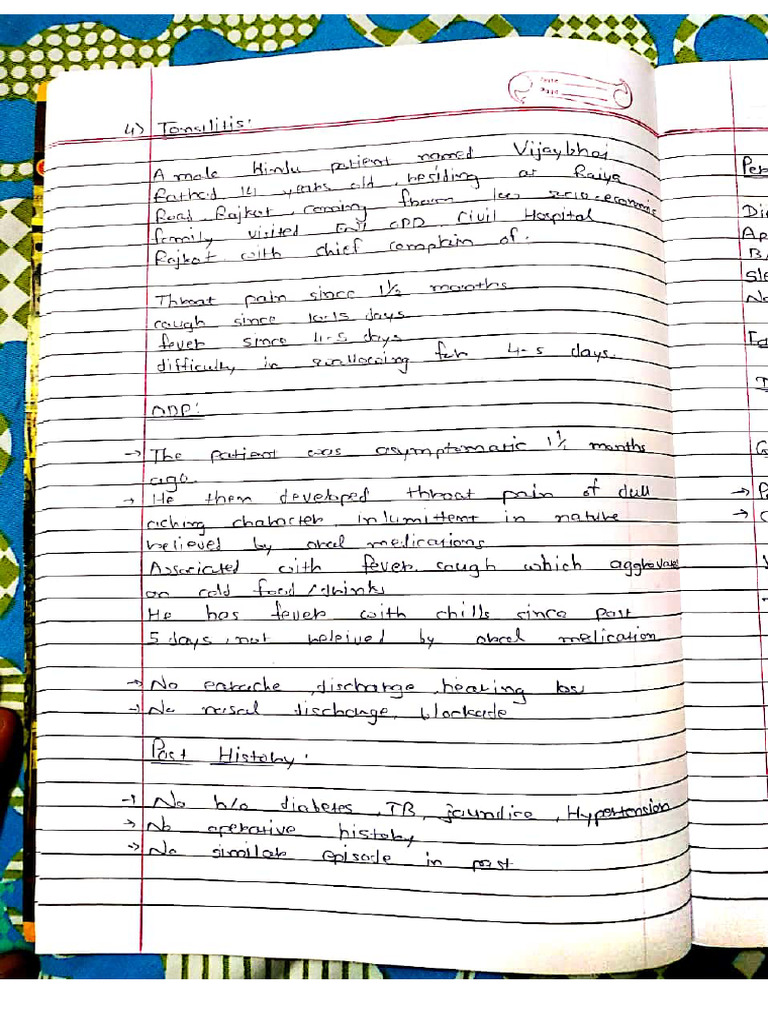 Date
Page
4) Tonsilitis:
A male Hindu patient named Vijaybhai
Rathod 14 years old, residing at Raiya
Road, Rajkot, coming from low socio-economic
family visited ENT OPD, Civil Hospital
Rajkot with chief complain of.
Throat pain since 1½ months
cough since 10-15 days
fever since 4-5 days
difficulty in swallowing for 4-5 days.
ODP:
→ The patient was asymptomatic 1½ months
ago.
→ He then developed throat pain of dull
aching character, intumittent in nature
relieved by oral medications
Associated with fever, cough which aggravates
on cold food/drinks
He has fever with chills since past
5 days, not releived by oral medication
→ No earache, discharge, hearing loss
→ No nasal discharge, blockade
Past History:
→ No h/o diabetes, TB, jaundice, Hypertension
→ No operative history
→ No similar episode in past
Per
Di
Ap
B/
Sle
No